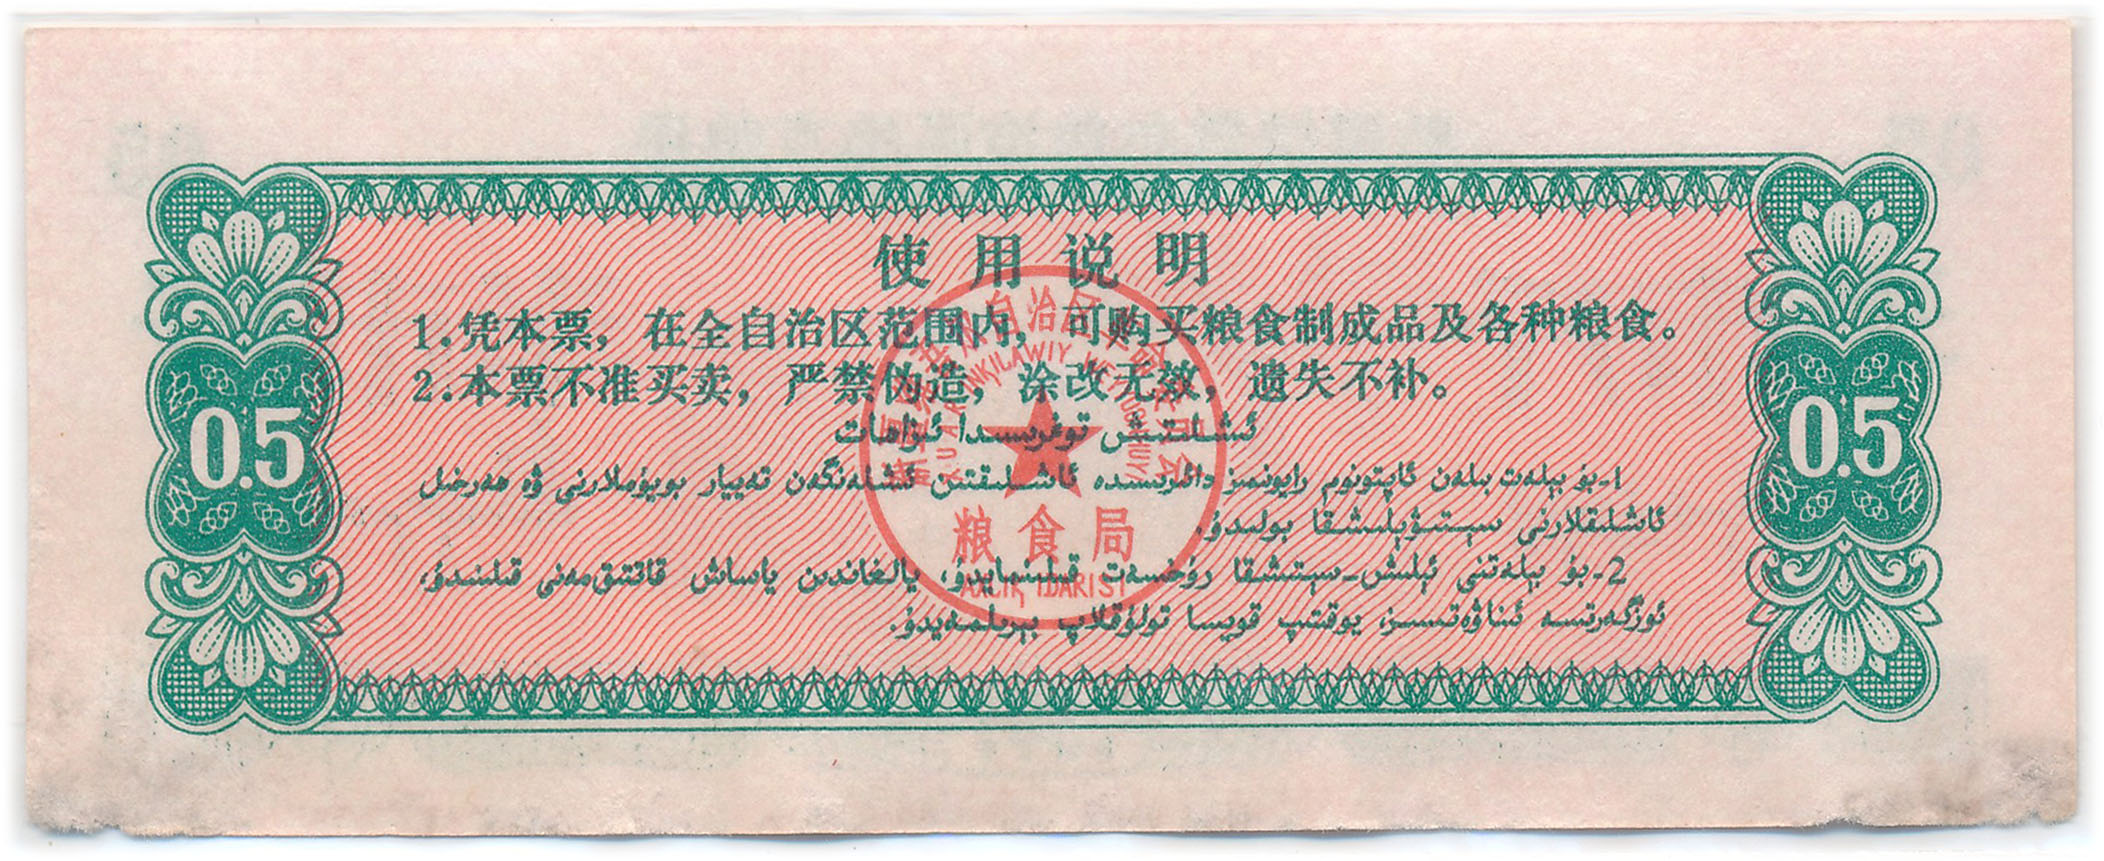 使用说明
1.凭本票，在全自治区范围内，可购买粮食制成品及各种粮食。
2.本票不准买卖，严禁伪造，涂改无效，遗失不补。
ئىشلىتىش توغرىسىدا ئىزاھات
1-بۇ بېلەت بىلەن ئاپتونوم رايونىمىز دائىرىسىدە ئاشلىقتىن ئىشلەنگەن تەييار بويۇملارنى ۋە ھەرخىل
ئاشلىقلارنى سېتىۋېلىشقا بولىدۇ.
2-بۇ بېلەتنى ئېلىش-سېتىشقا رۇخسەت قىلىنمايدۇ، يالغاندىن ياساش قاتتىق مەنى قىلىنىدۇ،
ئۆزگەرتسە ئىناۋەتسىز، يوقىتىپ قويسا تولۇقلاپ بېرىلمەيدۇ.
0.5
0.5
自治区
INKILAWIY
粮食局
AXLIⱪ IDARISI